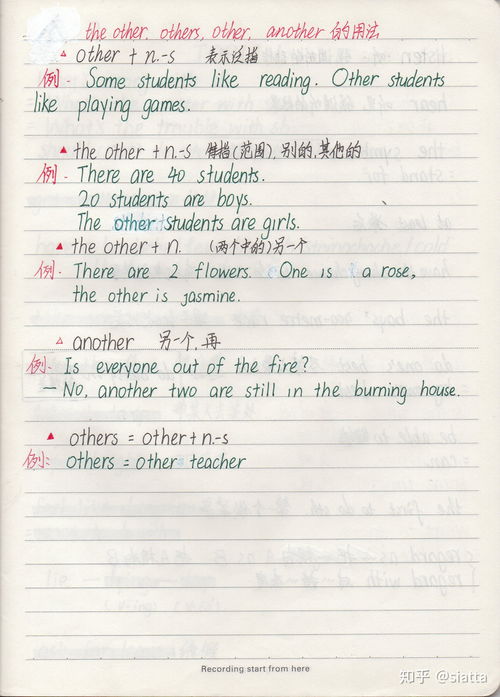 the other, others, other, another 的用法
△ other + n.-s 表示泛指
例· Some students like reading. Other students
like playing games.
▲ the other + n.-s 特指(范围), 别的, 其他的
例· There are 40 students.
20 students are boys.
The other students are girls.
▲ the other + n. (两个中的)另一个
例· There are 2 flowers. One is a rose,
the other is jasmine.
△ another 另一个, 再
例· Is everyone out of the fire?
— No, another two are still in the burning house.
▲ others = other + n.-s
例: others = other teacher
Recording start from here
知乎 @siatta